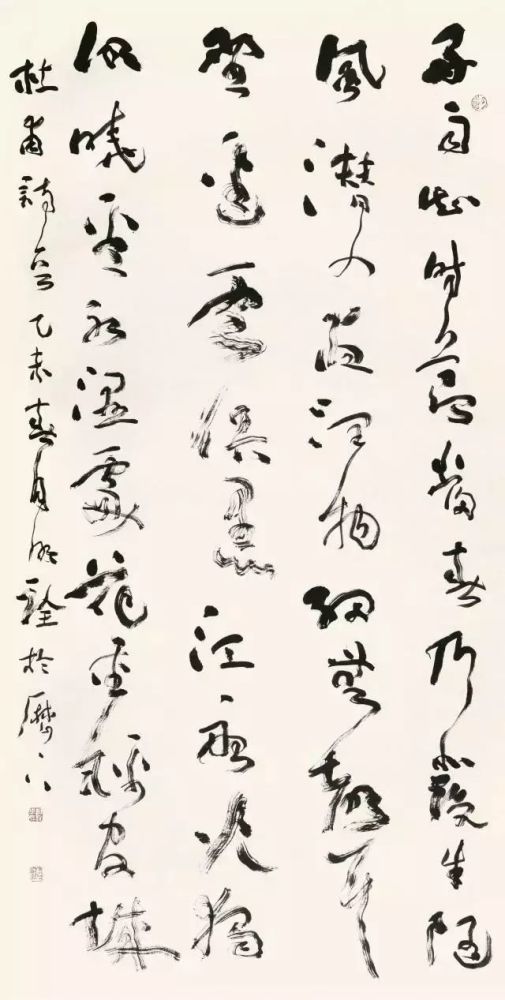 好雨知時節當春乃發生隨
風潛入夜潤物細無聲
野徑雲俱黑江船火獨
明曉看紅濕處花重錦官城
杜甫詩乙未春月明詮於歷下